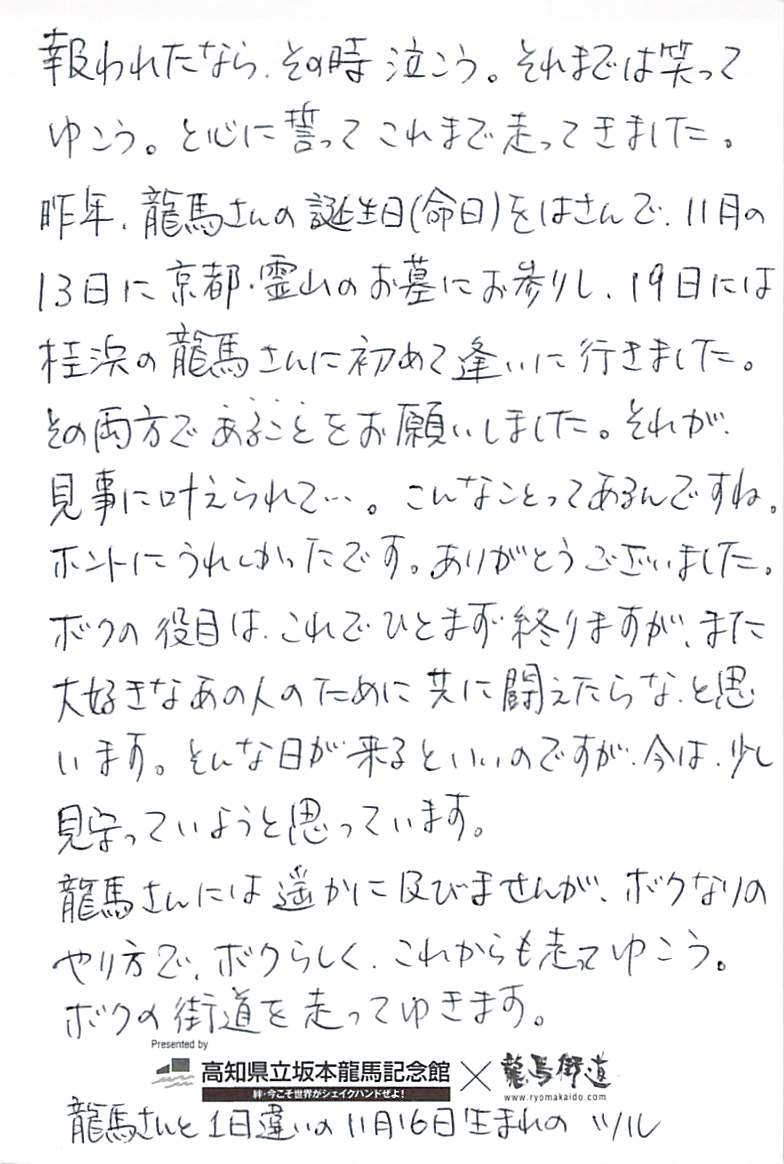 報われたなら、その時泣こう。それまでは笑って
ゆこう。と心に誓ってこれまで走ってきました。
昨年、龍馬さんの誕生日(命日)をはさんで、11月の
13日に京都・霊山のお墓にお参りし、19日には
桂浜の龍馬さんに初めて逢いに行きました。
その両方であることをお願いしました。それが、
見事に叶えられて…。こんなことってあるんですね。
ホントにうれしかったです。ありがとうございました。
ボクの役目は、これでひとまず終りますが、また
大好きなあの人のために共に闘えたらな、と思
います。そんな日が来るといいのですが、今は、少し
見守っていようと思っています。
龍馬さんには遥かに及びませんが、ボクなりの
やり方で、ボクらしく、これからも走ってゆこう。
ボクの街道を走ってゆきます。
Presented by
高知県立坂本龍馬記念館 × 龍馬街道
絆・今こそ世界がシェイクハンドぜよ！
www.ryomakaido.com
龍馬さんと1日違いの11月16日生まれのツル